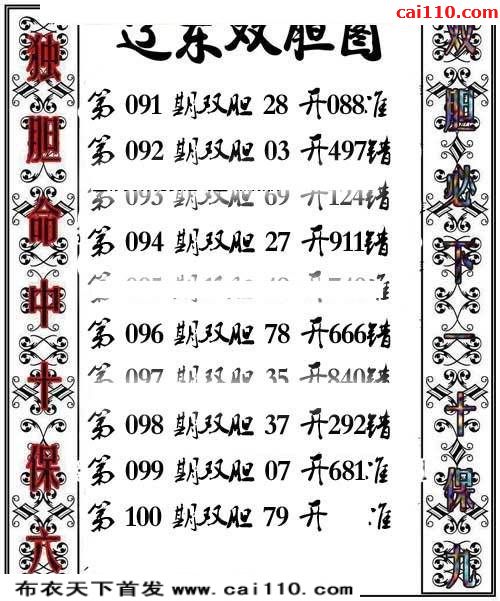 cai110.com
辽东双胆图
独胆命中十保六
第 091 期双胆 28 开088准
第 092 期双胆 03 开497错
第 093 期双胆 69 开124错
第 094 期双胆 27 开911错
第 096 期双胆 78 开666错
第 097 期双胆 35 开840错
第 098 期双胆 37 开292错
第 099 期双胆 07 开681准
第 100 期双胆 79 开 准
双胆必下一十保九
布衣天下首发 www.cai110.com